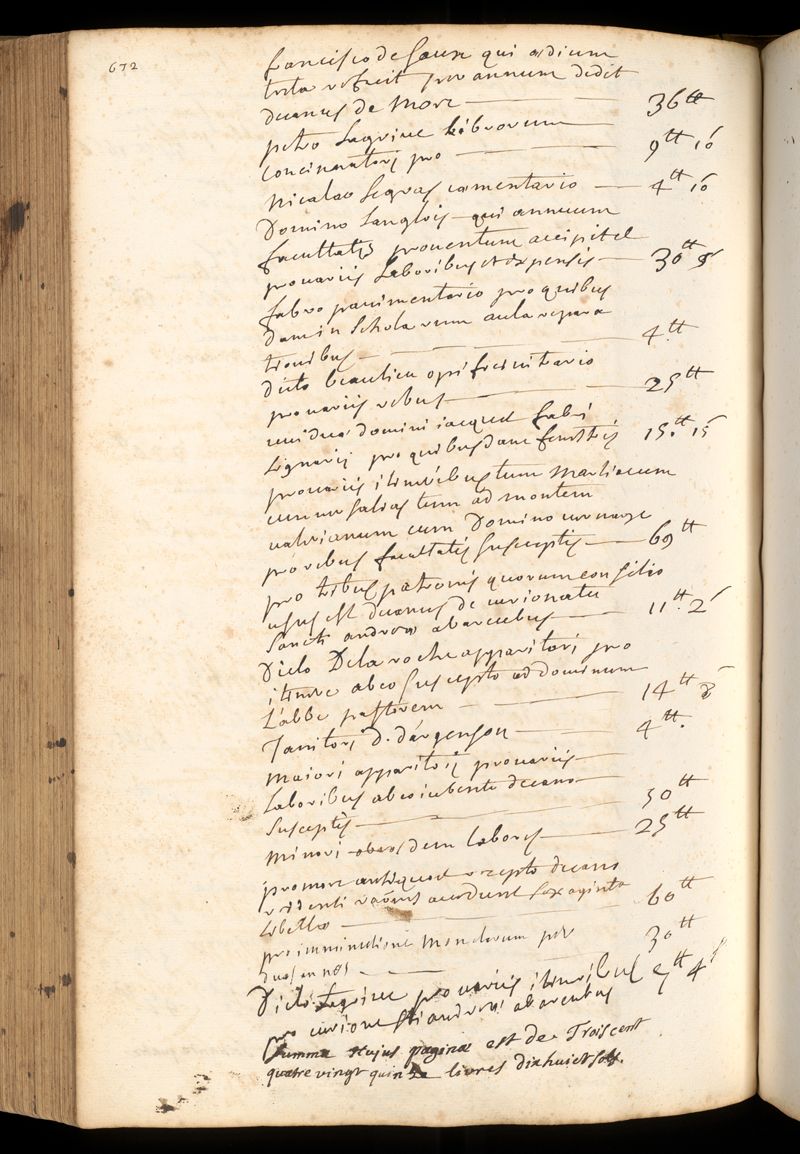 672
francisco de Gaux qui ædium
tecta refecit per annum dedit
decanus de More 36 tt
petro Legrive librorum
concinnatori pro 9 tt 16
Nicolao Legras comentario 4 tt 10
Domino Langlois qui annuum
facultatis prouentum accipit et
pro uariis Laboribus et expensis 30 tt 5
fabro pauimentario pro quibus
dam in Scholarum aula repara
tionibus 4. tt
dicto beaulieu opifici uitrario
pro uariis rebus 25 tt
uiduæ domini iacquet fabri
Lignarij pro quibusdam 15. tt 15
pro uariis itineribus tum Marliacum
cum uersalias tum ad montem
ualerianum cum Domino
pro rebus facultatis susceptis 69 tt
pro tribus patronis quorum consilio
usus est decanus de curionatu
Sancti andreæ ab arcubus 11 tt. 2
Dicto Delaroche apparitori pro
itinere ab eo suscepto ad dominum
L'abbe pastorem 14 tt 8
Janitori D. d'argenson 4 tt.
Maiori apparitori pro uariis
Laboribus ab eo iubente decano
Susceptis 50 tt
Minori ob eosdem Labores 25 tt
pro more antiquo recepto decano
accedunt sexaginta
Libellæ 60 tt
pro imminutione Monetarum per
30 tt
Dicto Legrive pro uariis itineribus 5 tt 4
pro curione sti andreæ ab arcubus
Summa hujus paginæ est de Trois cent
quatre vingt quinze livres dixhuict sols.